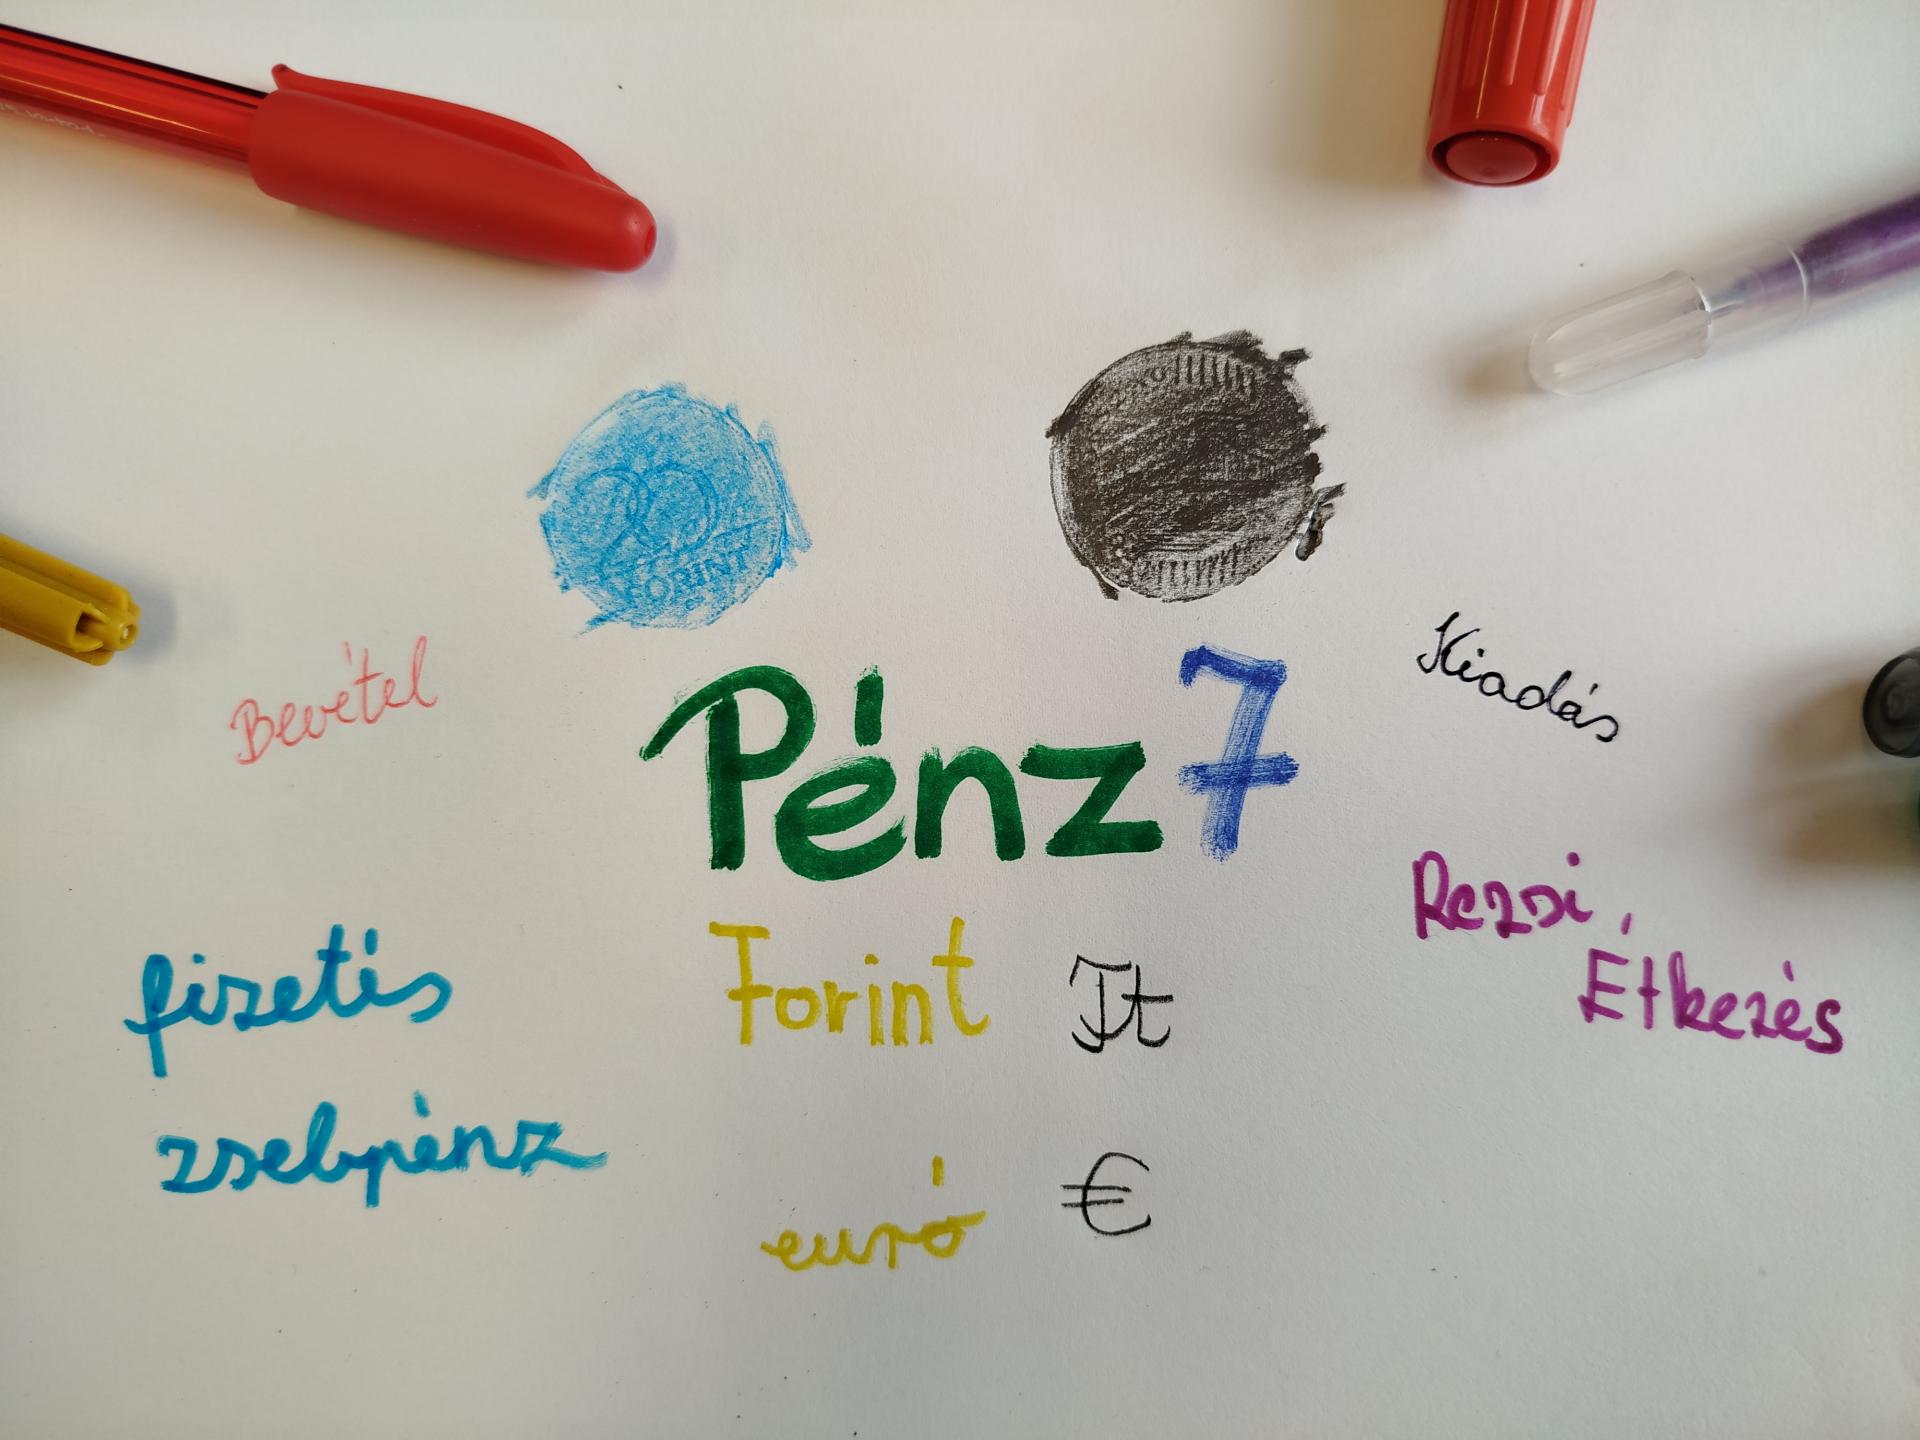 20
FORINT
Bevétel
Kiadás
Pénz7
fizetés
Forint Ft
Rezsi,
Étkezés
zsebpénz
euró €